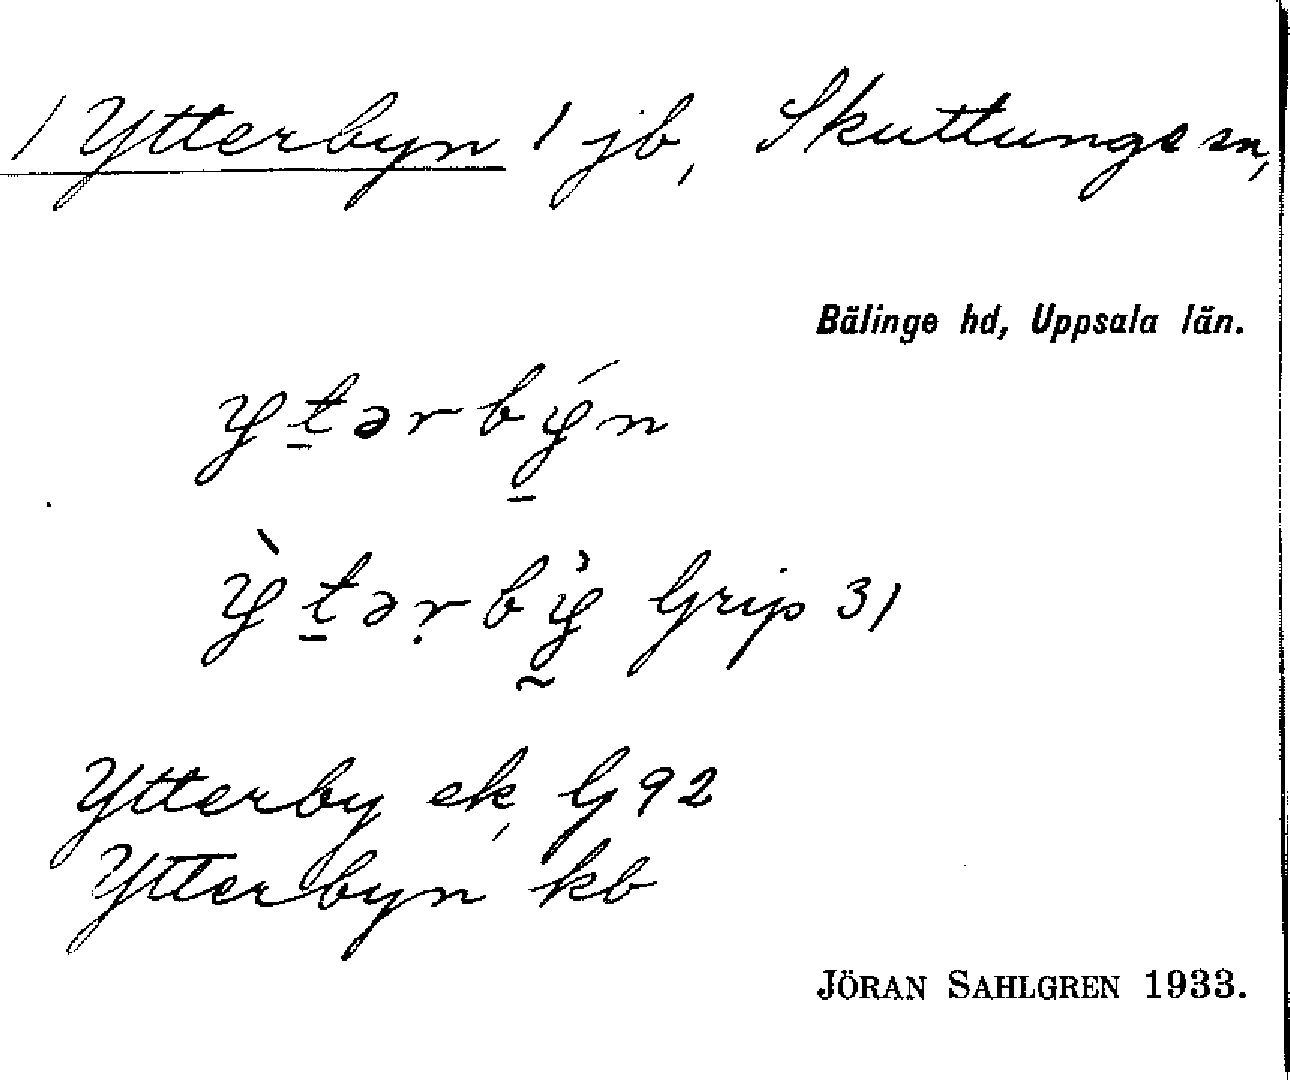 / Ytterbyn 1 jb, Skuttunge sn,
Bälinge hd, Uppsala län.
yt̲ərbý̲n
ỳt̲əṛbỳ̰ Grip 31
Ytterby ek, G 92
Ytterbyn kb
JÖRAN SAHLGREN 1933.